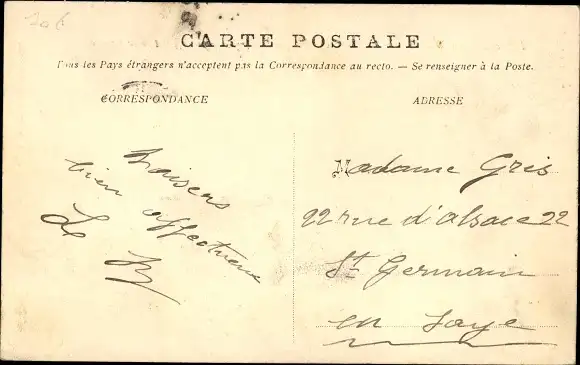 CARTE POSTALE
Tous les Pays étrangers n'acceptent pas la Correspondance au recto. — Se renseigner à la Poste.
CORRESPONDANCE
baisers
bien affectueux
ADRESSE
Madame Gris
22 rue d'alsace 22
St Germain
en Laye